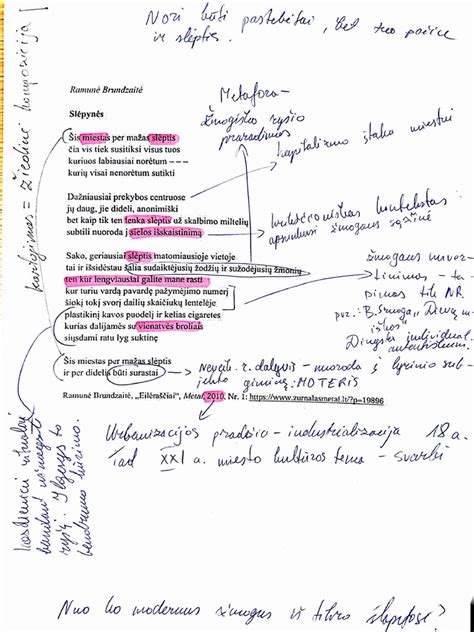 Nori būti pastebėtai, bet tuo pačiu
ir slėptis.
kartojimas = žiedinė kompozicija
Ramunė Brundzaitė
Slėpynės
Šis miestas per mažas slėptis
čia vis tiek susitiksi visus tuos
kuriuos labiausiai norėtum – – –
kurių visai nenorėtum sutikti
Dažniausiai prekybos centruose
jų daug, jie dideli, anonimiški
bet kaip tik ten tenka slėptis už skalbimo miltelių
subtili nuoroda į sielos išskaistinimą
Sako, geriausiai slėptis matomiausioje vietoje
tai ir išsidėstau šalia sudaiktėjusių žodžių ir sužodėjusių žmonių
ten kur lengviausiai galite mane rasti
kur turiu vardą pavardę pažymėjimo numerį
šiokį tokį svorį dailių skaičiukų lentelėje
plastikinį kavos puodelį ir kelias cigaretes
kurias dalijamės su vienatvės broliais
siųsdami ratu lyg suktinę
Šis miestas per mažas slėptis
ir per didelis būti surastai
Ramunė Brundzaitė, „Eilėraščiai“, Metai, 2010, Nr. 1: https://www.zurnalasmetai.lt/?p=19896
Metafora –
žmogiško ryšio
praradimas
kapitalizmo įtaka miestui
apsunkusi žmogaus sąžinė
žmogaus nuver-
tinimas – ta-
pimas tik NR.
pvz.: B. Sruoga „Dievų m
iškas“
Dingsta individual.
Neveik. r. dalyvis – nuoroda į lyrinio sub-
jekto giminę: MOTERIS
Urbanizacijos pradžia – industrializacija 18 a.
tad XXI a. miesto kultūros tema – svarbi
ryšį. Ilgesys to
bendrumo būrimo.
Nuo ko modernus žmogus iš tikro slapstosi?